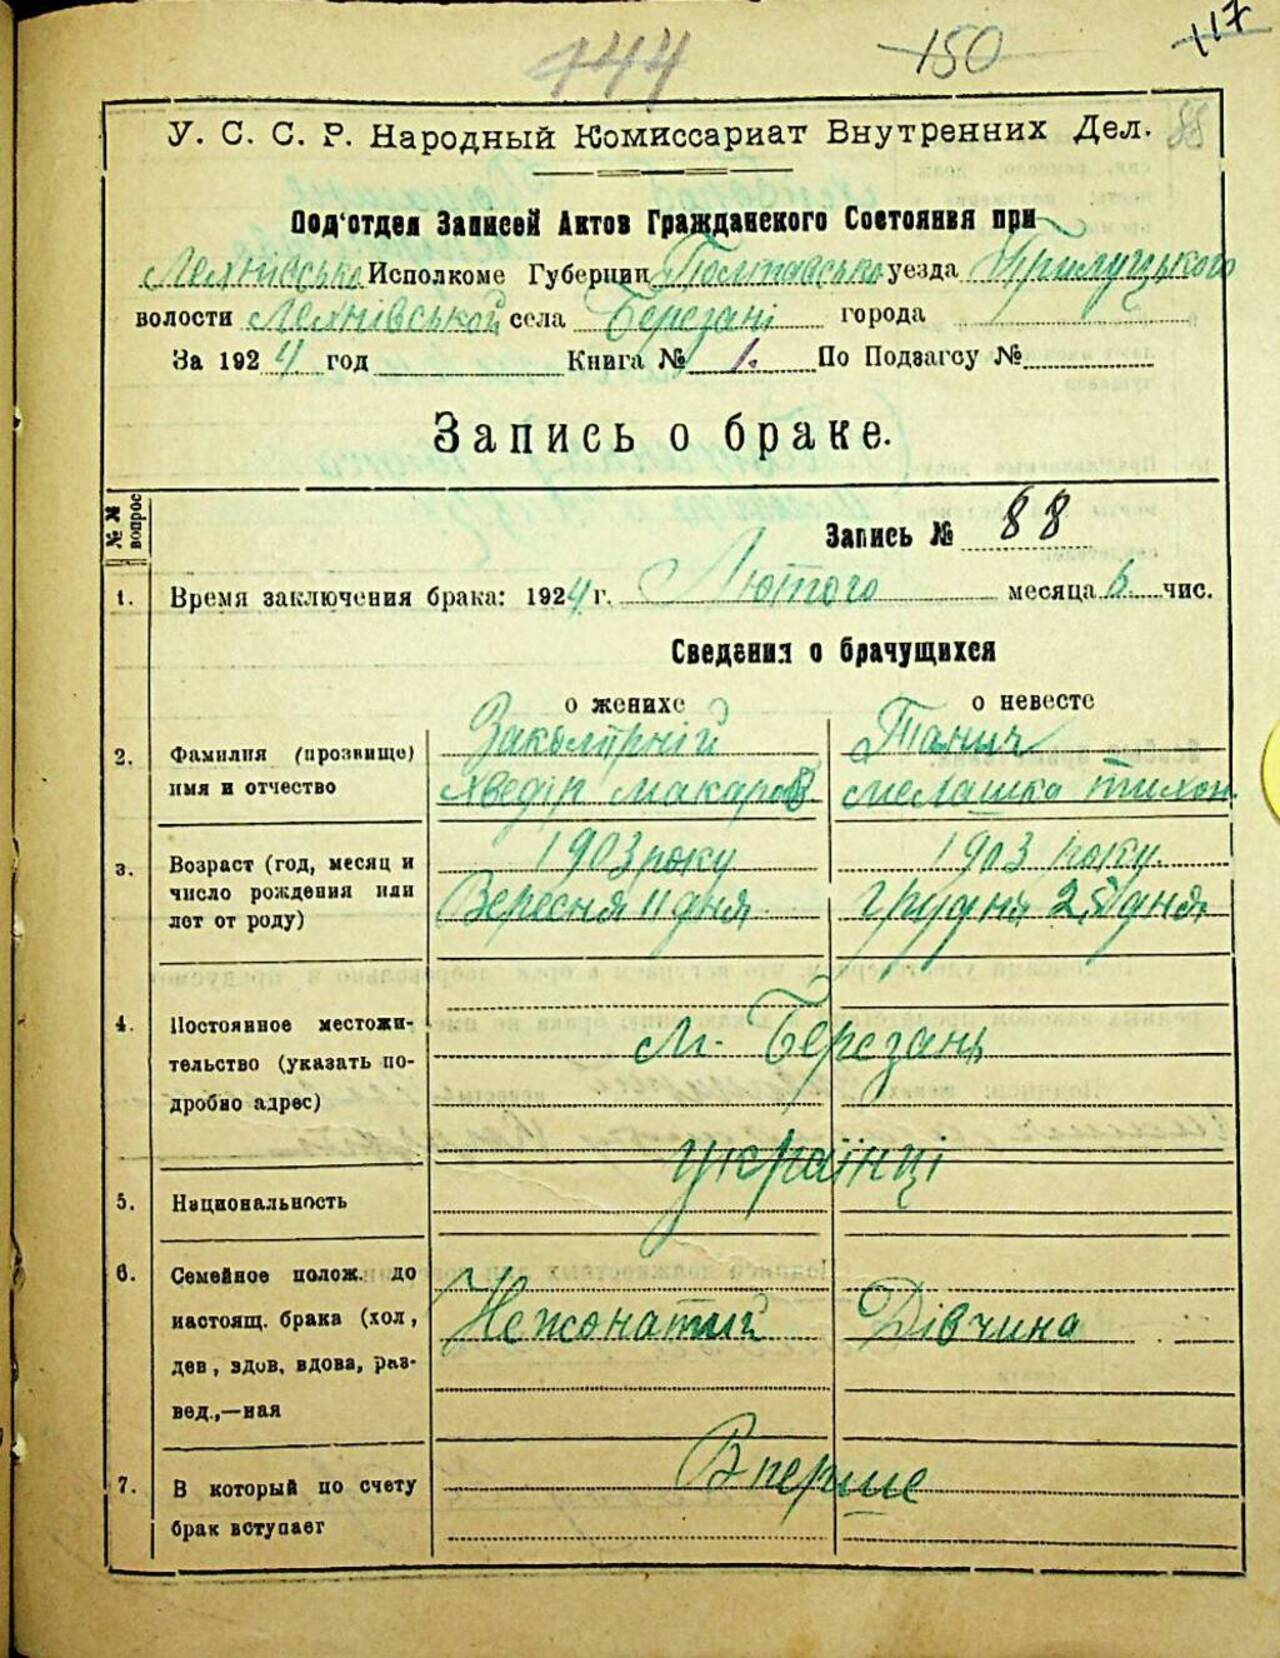 144 150 117
У. С. С. Р. Народный Комиссариат Внутренних Дел. 88
Под'отдел Записей Актов Гражданского Состояния при
Лехнівсько Исполкоме Губернии Полтавсько уезда Прилуцького
волости Лехнівської села Березані города
За 1924 год Книга № 1. По Подзагсу №
Запись о браке.
№№ вопрос
Запись № 88
1. Время заключения брака: 1924 г. Лютого месяца 6. чис.
Сведения о брачущихся
о женихе о невесте
2. Фамилия (прозвище) имя и отчество
Хведір Макаров
Танич
Мелашка Тихон.
3. Возраст (год, месяц и число рождения или лет от роду)
1903 року
Вересня 11 дня
1903 року.
Грудня 25 дня
4. Постоянное местожительство (указать подробно адрес)
м. Березань
5. Национальность
українці
6. Семейное полож. до настоящ. брака (хол, дев, вдов, вдова, развед.,—ная
Нежонатий
Дівчина
7. В который по счету брак вступает
Вперше